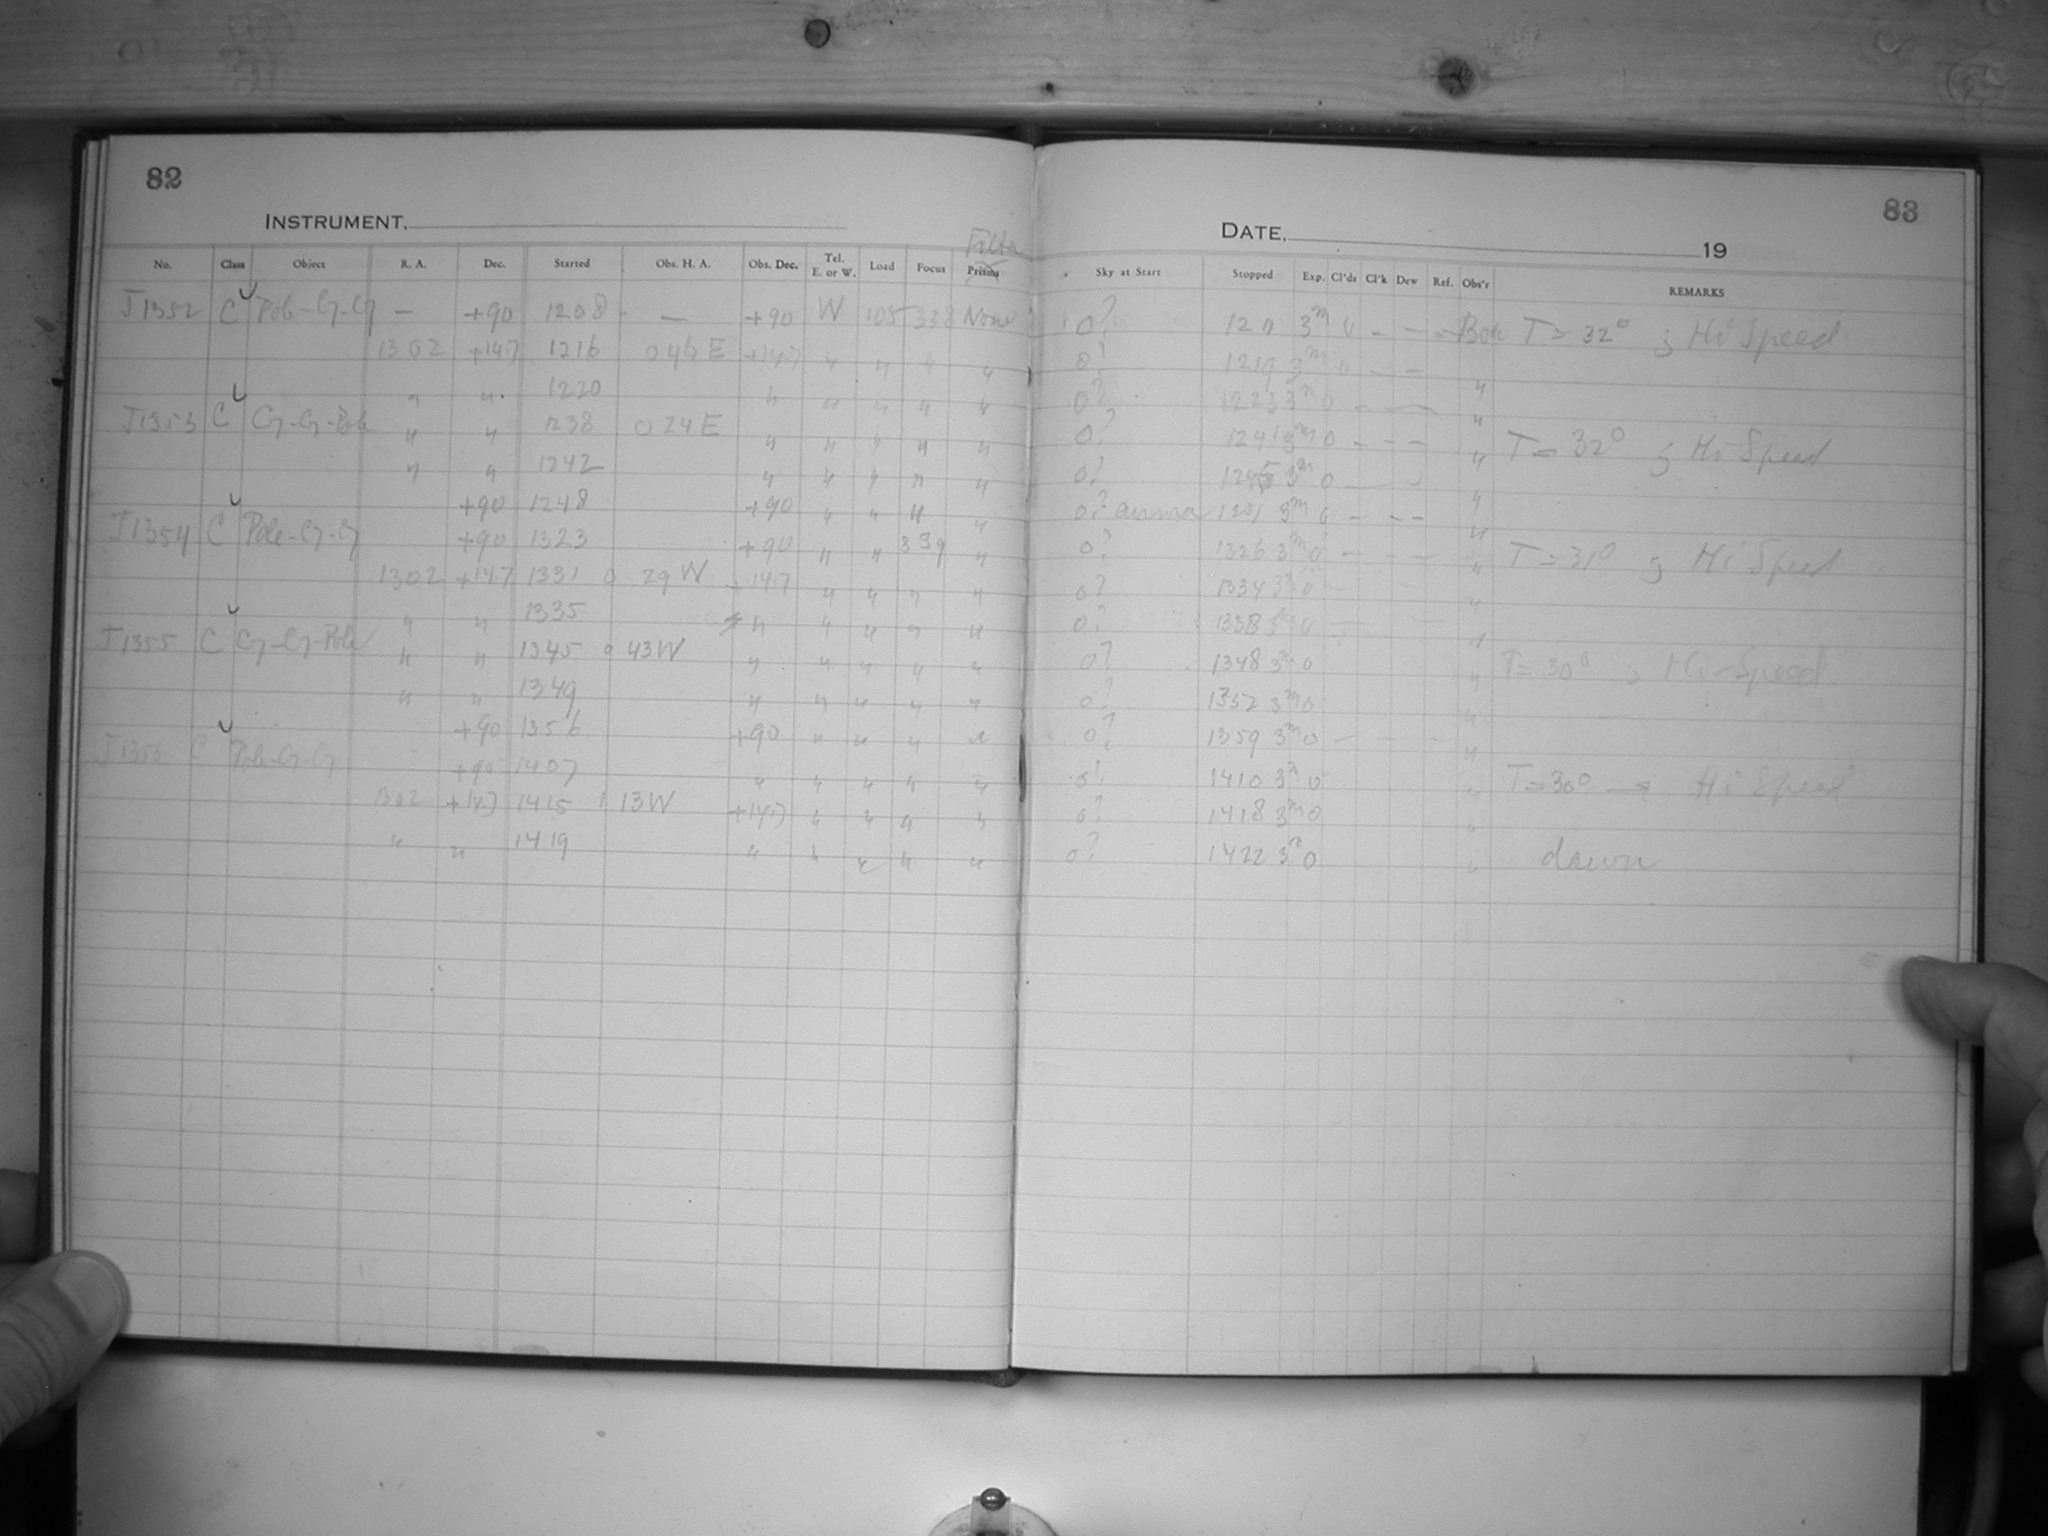 82
INSTRUMENT.
Filter
No. Class Object R. A. Dec. Started Obs. H. A. Obs. Dec. Tel. E. or W. Load Focus Prisms
J1352 C Pole-C7-C7 — +90 1208 — +90 W 105 338 None
1302 +14.7 1216 0 46 E +14.7 " " " "
" " 1220 " " " " "
J1353 C C7-C7-Pole " " 1238 0 24 E " " " " "
" " 1242 " " " " "
+90 1248 +90 " " " "
J1354 C Pole-C7-C7 +90 1323 +90 " " 339 "
1302 +14.7 1331 0 29 W +14.7 " " " "
" " 1335 " " " " "
J1355 C C7-C7-Pole " " 1345 0 43W " " " " "
" " 1349 " " " " "
+90 1356 +90 " " " "
J1356 C Pole-C7-C7 +90 1407 " " " " "
1302 +14.7 1415 1 13W +14.7 " " " "
" " 1419 " " " " "
83
DATE, 19
Sky at Start Stopped Exp. Cl'ds Cl'k Dew Ref. Obs'r REMARKS
0? 1211 3m 0 - - - Bok T = 32° ; Hi Speed
0? 1219 3m 0 — — "
0? 1223 3m 0 - — "
0? 1241 3m 0 - - - " T = 32° ; Hi Speed
0? 1245 3m 0 "
0? 1251 3m 0 - - - "
0? 1326 3m 0 - - - " T = 31° ; Hi Speed
0? 1334 3m 0 - "
0? 1338 3m 0 "
0? 1348 3m 0 " T = 30° ; Hi-Speed
0? 1352 3m 0 "
0? 1359 3m 0 - - - "
0? 1410 3m 0 " T = 30° Hi Speed
0? 1418 3m 0 "
0? 1422 3m 0 " dawn